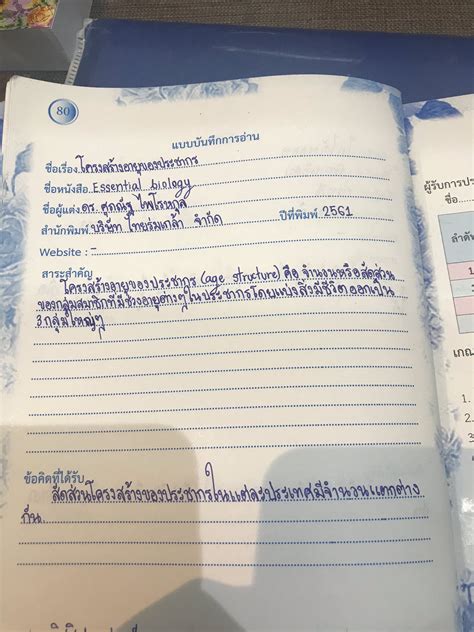 80
แบบบันทึกการอ่าน
ชื่อเรื่อง โครงสร้างอายุของประชากร
ชื่อหนังสือ Essential biology
ชื่อผู้แต่ง ดร. ศุภณัฐ ไพโรหกุล
สำนักพิมพ์ บริษัท ไทยร่มเกล้า จำกัด ปีที่พิมพ์ 2561
Website : -
สาระสำคัญ
โครงสร้างอายุของประชากร (age structure) คือ จำนวนหรือสัดส่วน
ของกลุ่มสมาชิกที่มีช่วงอายุต่างๆ ในประชากรโดยแบ่งสิ่งมีชีวิตออกเป็น
3 กลุ่มใหญ่ๆ
ข้อคิดที่ได้รับ
สัดส่วนโครงสร้างของประชากรในแต่ละประเทศมีจำนวนแตกต่าง
กัน
ผู้รับการประ
ชื่อ
ลำดับ
เกณ
1.
2.
3.